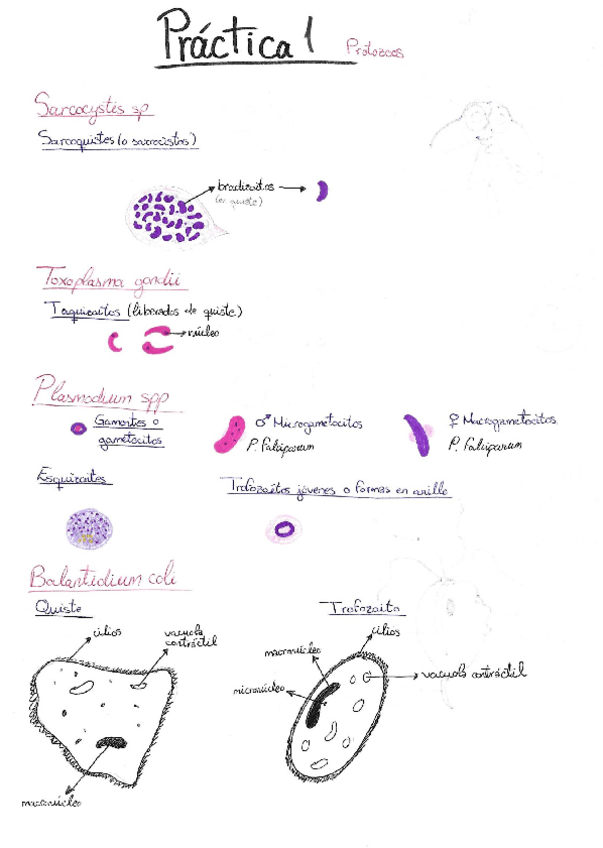 Práctica 1 Protozoos
Sarcocystis sp
Sarcoquistes (o sarcocistos)
bradizoitos
(en quiste)
Toxoplasma gondii
Taquizoitos (liberados de quiste)
núcleo
Plasmodium spp
Gamontes o
gametocitos
♂ Microgametocitos
P. falciparum
♀ Macrogametocitos
P. falciparum
Esquizontes
Trofozoitos jóvenes o formas en anillo
Balantidium coli
Quiste
cilios
vacuola
contráctil
macronúcleo
Trofozoito
cilios
macronúcleo
micronúcleo
vacuola contráctil